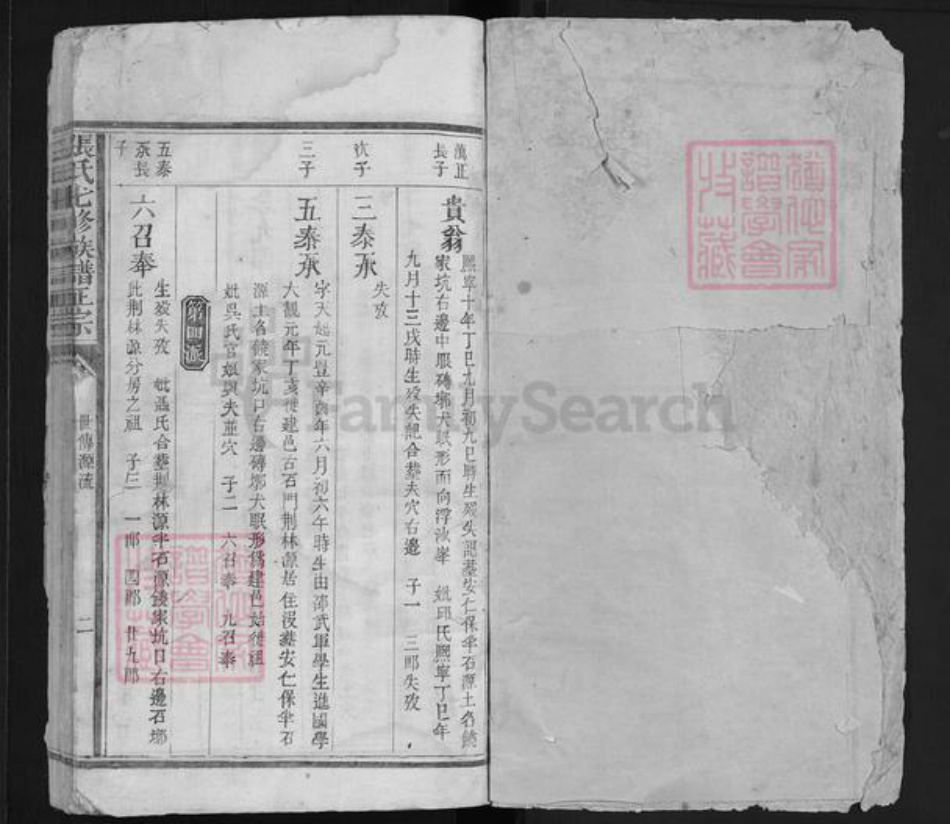 萬正長子
貴翁
熙寧十年丁巳九月初九巳時生歿失記墓安仁保半石源土名饒
家坑右邊中眼磚墎犬眠形面向浮 峯 妣邱氏熙寧丁巳年
九月十三戌時生歿失記合墓夫穴右邊 子一 三郎失攷
次子
三泰丞
失攷
三子
五泰丞
字天 元豐辛酉年六月初六午時生由邵武軍學生進國學
大觀元年丁亥徙建邑古石門荆林源居住沒墓安仁保半石
源土名饒家坑口右邊磚墎犬眠形爲建邑始徙祖
妣吳氏官娘與夫並穴 子二 六召奉 九召奉
第四派
五泰丞長子
六召奉
生歿失攷 妣聶氏合墓荆林源半石源饒家坑口右邊石墎
此荆林源分房之祖 子三 一郎 四郎 廿九郎
張氏七修族譜正宗
世傳源流
二
譜學會
收藏
FamilySearch